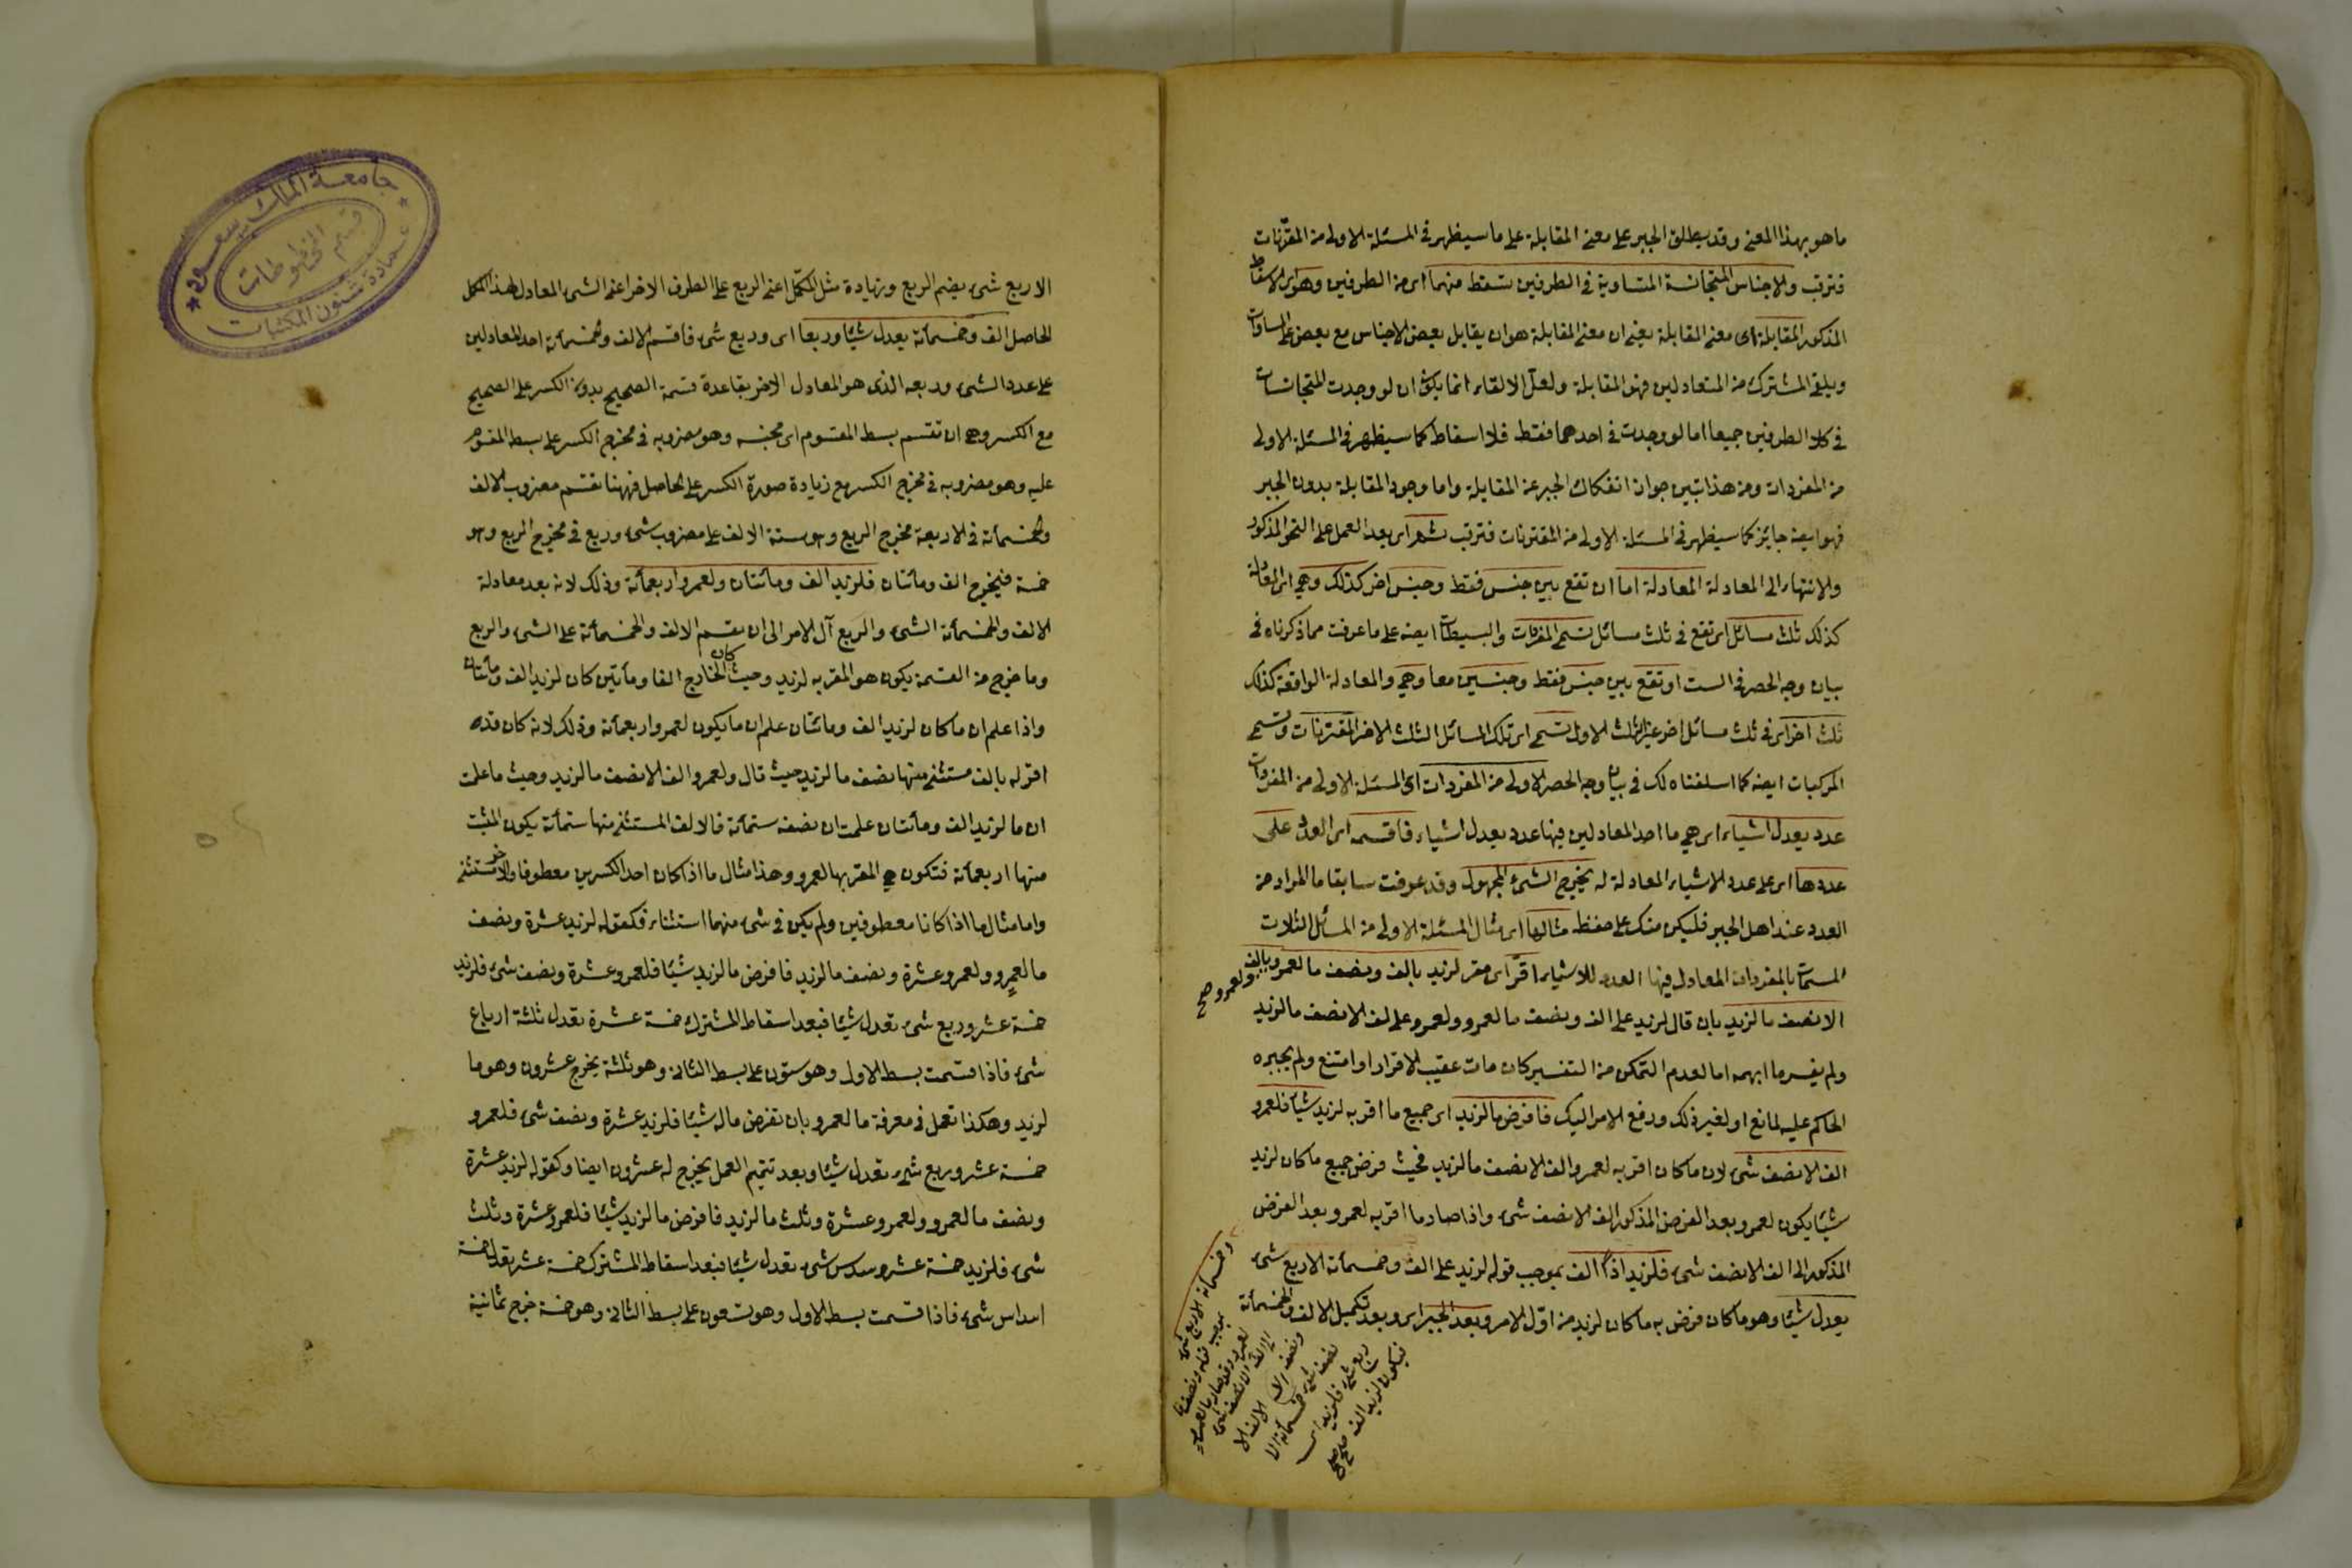 ما هو بهذا المعنى وقد يطلق الجبر على معنى المقابلة على ما سيظهر فى المسئلة الاولى من المقترنات
فترقب والاجناس المتجانسة المتساوية فى الطرفين تسقط منهما اى من الطرفين وهو اى الاسقاط
المذكور المقابلة اى معنى المقابلة يعنى ان معنى المقابلة هو ان يقابل بعض الاجناس مع بعض على المساوات
ويلقى المشترك من المتعادلين فهو المقابلة ولعل الالقاء انما يكون ان لو وجدت المتجانسات
فى كلا الطرفين جميعا اما لو وجدت فى احدهما فقط فلا اسقاط كما سيظهر فى المسئلة الاولى
من المفردات ومن هذا تبين جواز انفكاك الجبر عن المقابلة واما وجود المقابلة بدون الجبر
فهو ايضا جايز كما سيظهر فى المسئلة الاولى من المقترنات فترقب ثم اى بعد العمل على النحو المذكور
والانتهاء الى المعادلة المعادلة اما ان تقع بين جنس فقط وجنس اخر كذلك وهى اى المعادلة
كذلك ثلث مسائل اى تقع فى ثلث مسائل تسمى المفردات والبسيطات ايضه على ما عرفت مما ذكرناه فى
بيان وجه الحصر فى الست او تقع بين جنس فقط وجنسين معا وهى والمعادلة الواقعة كذلك
ثلث اخر اى فى ثلث مسائل اخر غير الثلث الاول تسمى اى تلك المسائل الثلث الاخر المقترنات وتسمى
المركبات ايضه كما اسلفناه لك فى بيان وجه الحصر الاولى من المفردات اى المسئلة الاولى من المفردات
عدد يعدل اشياء اى هى ما احد المعادلين فيها عدد يعدل اشياء فاقسمه اى العدد على
عددها اى على عدد الاشياء المعادلة له يخرج الشىء المجهول وقد عرفت سابقا ما المراد من
العدد عند اهل الجبر فليكن منك على حفظ مثالها اى مثال المسئلة الاولى من المسائل الثلاث
المسمات بالمفردات المعادل فيها العدد للاشياء اقر اى مقر لزيد بالف ونصف ما لعمرو ولعمرو بالف صح
الا نصف ما لزيد بان قال لزيد على الف ونصف ما لعمرو ولعمرو على الف الا نصف ما لزيد
ولم يفسر ما ابهمه اما لعدم التمكن من التفسير كان مات عقيب الاقرار او امتنع ولم يجبره
الحاكم عليه لمانع او لغير ذلك ورفع الامر اليك فافرض ما لزيد اى جميع ما اقر به لزيد شيئا فلعمرو
الف الا نصف شىء لان ما كان اقر به لعمرو الف الا نصف ما لزيد فحيث فرض جميع ما كان لزيد
شيئا يكون لعمرو بعد الفرض المذكور الف الا نصف شىء واذا صار ما اقر به لعمرو بعد الفرض
المذكور الى الف الا نصف شىء فلزيد اذا الف بموجب قوله لزيد على الف وخمسمائة الا ربع شىء
يعدل شيئا وهو ما كان فرض به ما كان لزيد من اول الامر وبعد الجبر اى وبعد تكميل الالف والخمسمائة
وخمسمائة الا ربع شىء
بموجب قوله ونصف ما
لعمرو
الى الف الا نصف شىء
ونصف الالف الا
نصف شىء خمسمائة الا
ربع شىء فلزيد اى
فيكون لزيد الف صح
الا ربع شىء يضم الربع وبزيادة مثل المكمل اعنى الربع على الطرف الاخر اعنى الشىء المعادل لهذا المكمل
الحاصل الف وخمسمائة يعدل شيئا وربعا اى وربع شىء فاقسم الالف وخمسمائة احد المعادلين
على عدد الشىء وربعه الذى هو المعادل الاخر بقاعدة قسمة الصحيح بدون الكسر على الصحيح
مع الكسر وهى ان تقسم بسط المقسوم اى مجنسه وهو مضروبه فى مخرج الكسر على بسط المقسوم
عليه وهو مضروبه فى مخرج الكسر مع زيادة صورة الكسر على الحاصل فههنا نقسم مضروب الالف
والخمسمائة فى الاربعة مخرج الربع وهو ستة الالف على مضروب شىء وربع فى مخرج الربع وهو
خمسة فيخرج الف ومائتان فلزيد الف ومائتان ولعمرو اربعمائة وذلك لانه بعد معادلة
الالف والخمسمائة الشىء والربع آل الامر الى ان نقسم الالف والخمسمائة على الشىء والربع
وما خرج من القسمة يكون هو المقر به لزيد وحيث كان الخارج الفا ومائتين كان لزيد الف ومائتان
واذا علم ان ما كان لزيد الف ومائتان علم ان ما يكون لعمرو اربعمائة وذلك لانه كان قد
اقر له بالف مستثنى منها نصف ما لزيد حيث قال ولعمرو الف الا نصف ما لزيد وحيث ما علمت
ان ما لزيد الف ومائتان علمت ان نصفه ستمائة فالالف المستثنى منها ستمائة يكون المثبت
منها اربعمائة فتكون هى المقر بها لعمرو وهذا مثال ما اذا كان احد الكسرين معطوفا والاخر مستثنى
واما مثال ما اذا كانا معطوفين ولم يكن فى شىء منهما استثناء فكقوله لزيد عشرة ونصف
ما لعمرو ولعمرو عشرة ونصف ما لزيد فافرض ما لزيد شيئا فلعمرو عشرة ونصف شىء فلزيد
خمسة عشر وربع شىء تعدل شيئا فبعد اسقاط المشترك خمسة عشرة تعدل ثلثة ارباع
شىء فاذا قسمت بسط الاول وهو ستون على بسط الثانى وهو ثلثة يخرج عشرون وهو ما
لزيد وهكذا تعمل فى معرفة ما لعمرو بان تفرض ماله شيئا فلزيد عشرة ونصف شىء فلعمرو
خمسة عشر وربع شىء تعدل شيئا وبعد تتميم العمل يخرج له عشرون ايضا وكقوله لزيد عشرة
ونصف ما لعمرو ولعمرو عشرة وثلث ما لزيد فافرض ما لزيد شيئا فلعمرو عشرة وثلث
شىء فلزيد خمسة عشر وسدس شىء تعدل شيئا فبعد اسقاط المشترك خمسة عشر تعدل خمسة
اسداس شىء فاذا قسمت بسط الاول وهو تسعون على بسط الثانى وهو خمسة خرج ثمانية
جامعة الملك سعود
قسم المخطوطات
عمادة شئون المكتبات